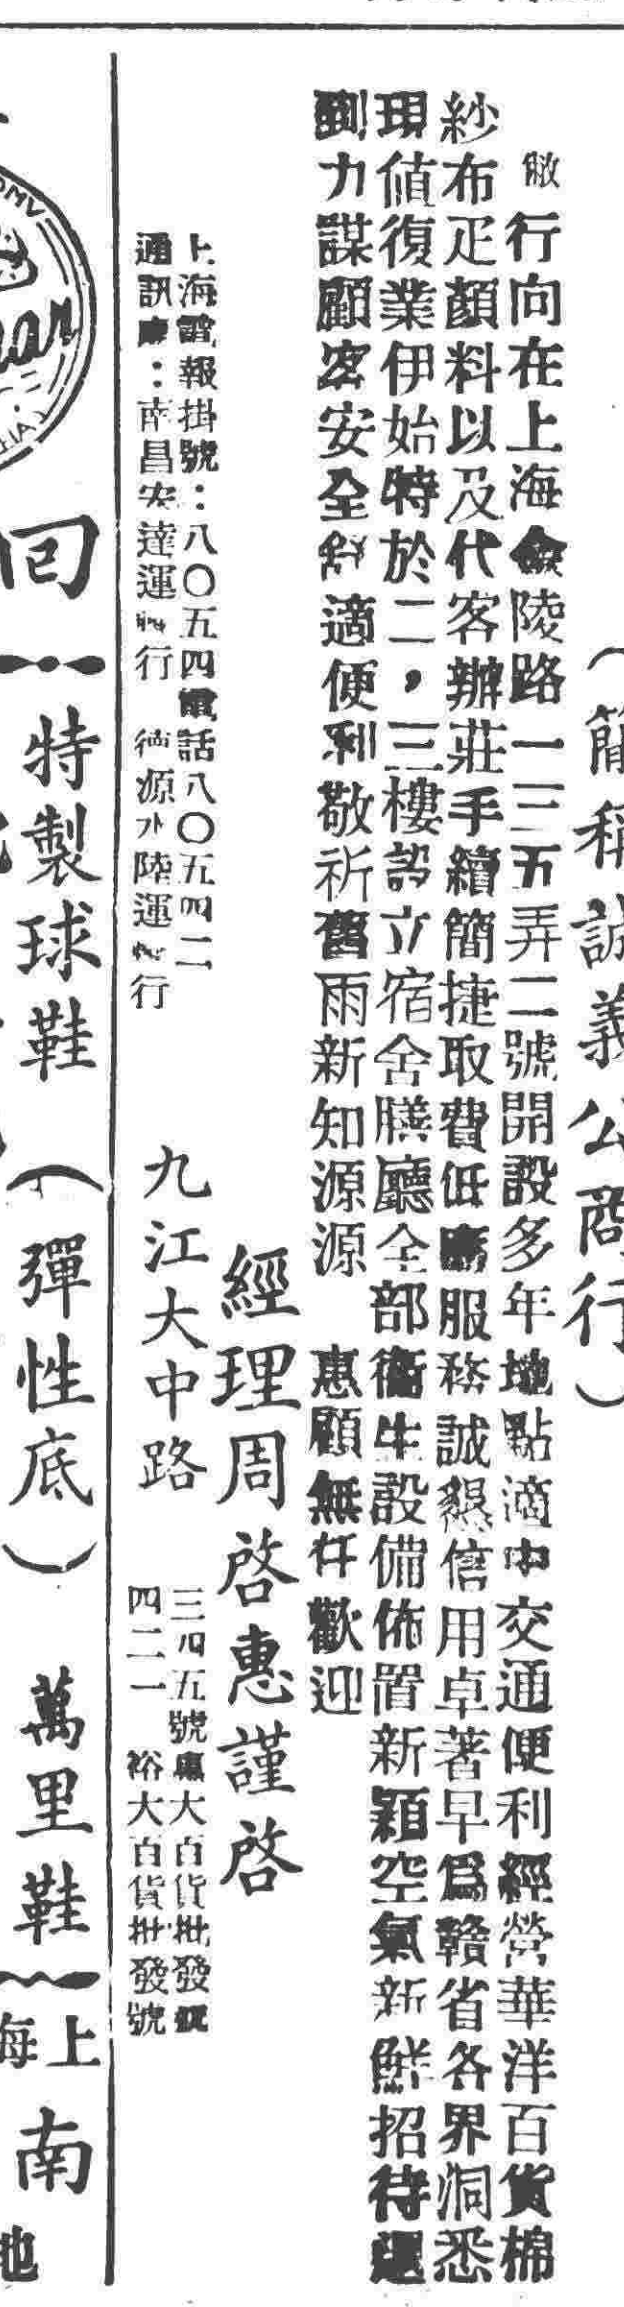 （簡稱誠義公商行）
敝行向在上海金陵路一三五弄二號開設多年地點適中交通便利經營華洋百貨棉
紗布疋顏料以及代客辦莊手續簡捷取費低廉服務誠懇信用卓著早爲贛省各界洞悉
現値復業伊始特於二，三樓設立宿舍膳廳全部衞生設備佈置新穎空氣新鮮招待週
到力謀顧客安全舒適便利敬祈舊雨新知源源　惠顧無任歡迎
經理周啓惠謹啓
上海電報掛號：八〇五四電話八〇五四二
通訊處：南昌安達運輸行　德源水陸運輸行
九江大中路
三四五號　大百貨批發號
四二一　裕大百貨批發號
回
特製球鞋（彈性底）　萬里鞋
上海
南